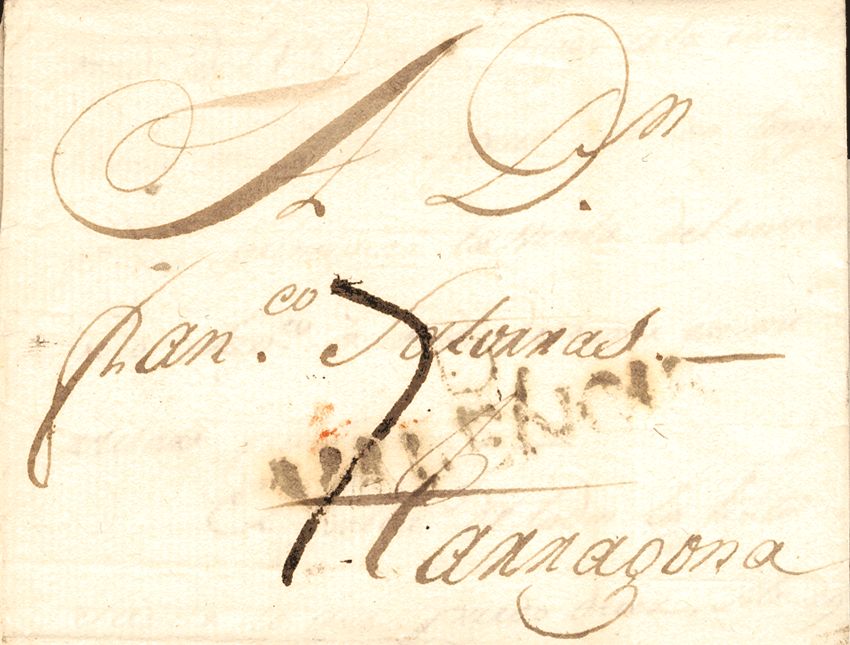 A Dn.
Fran.co Satorras
7
VALENCIA
Tarragona